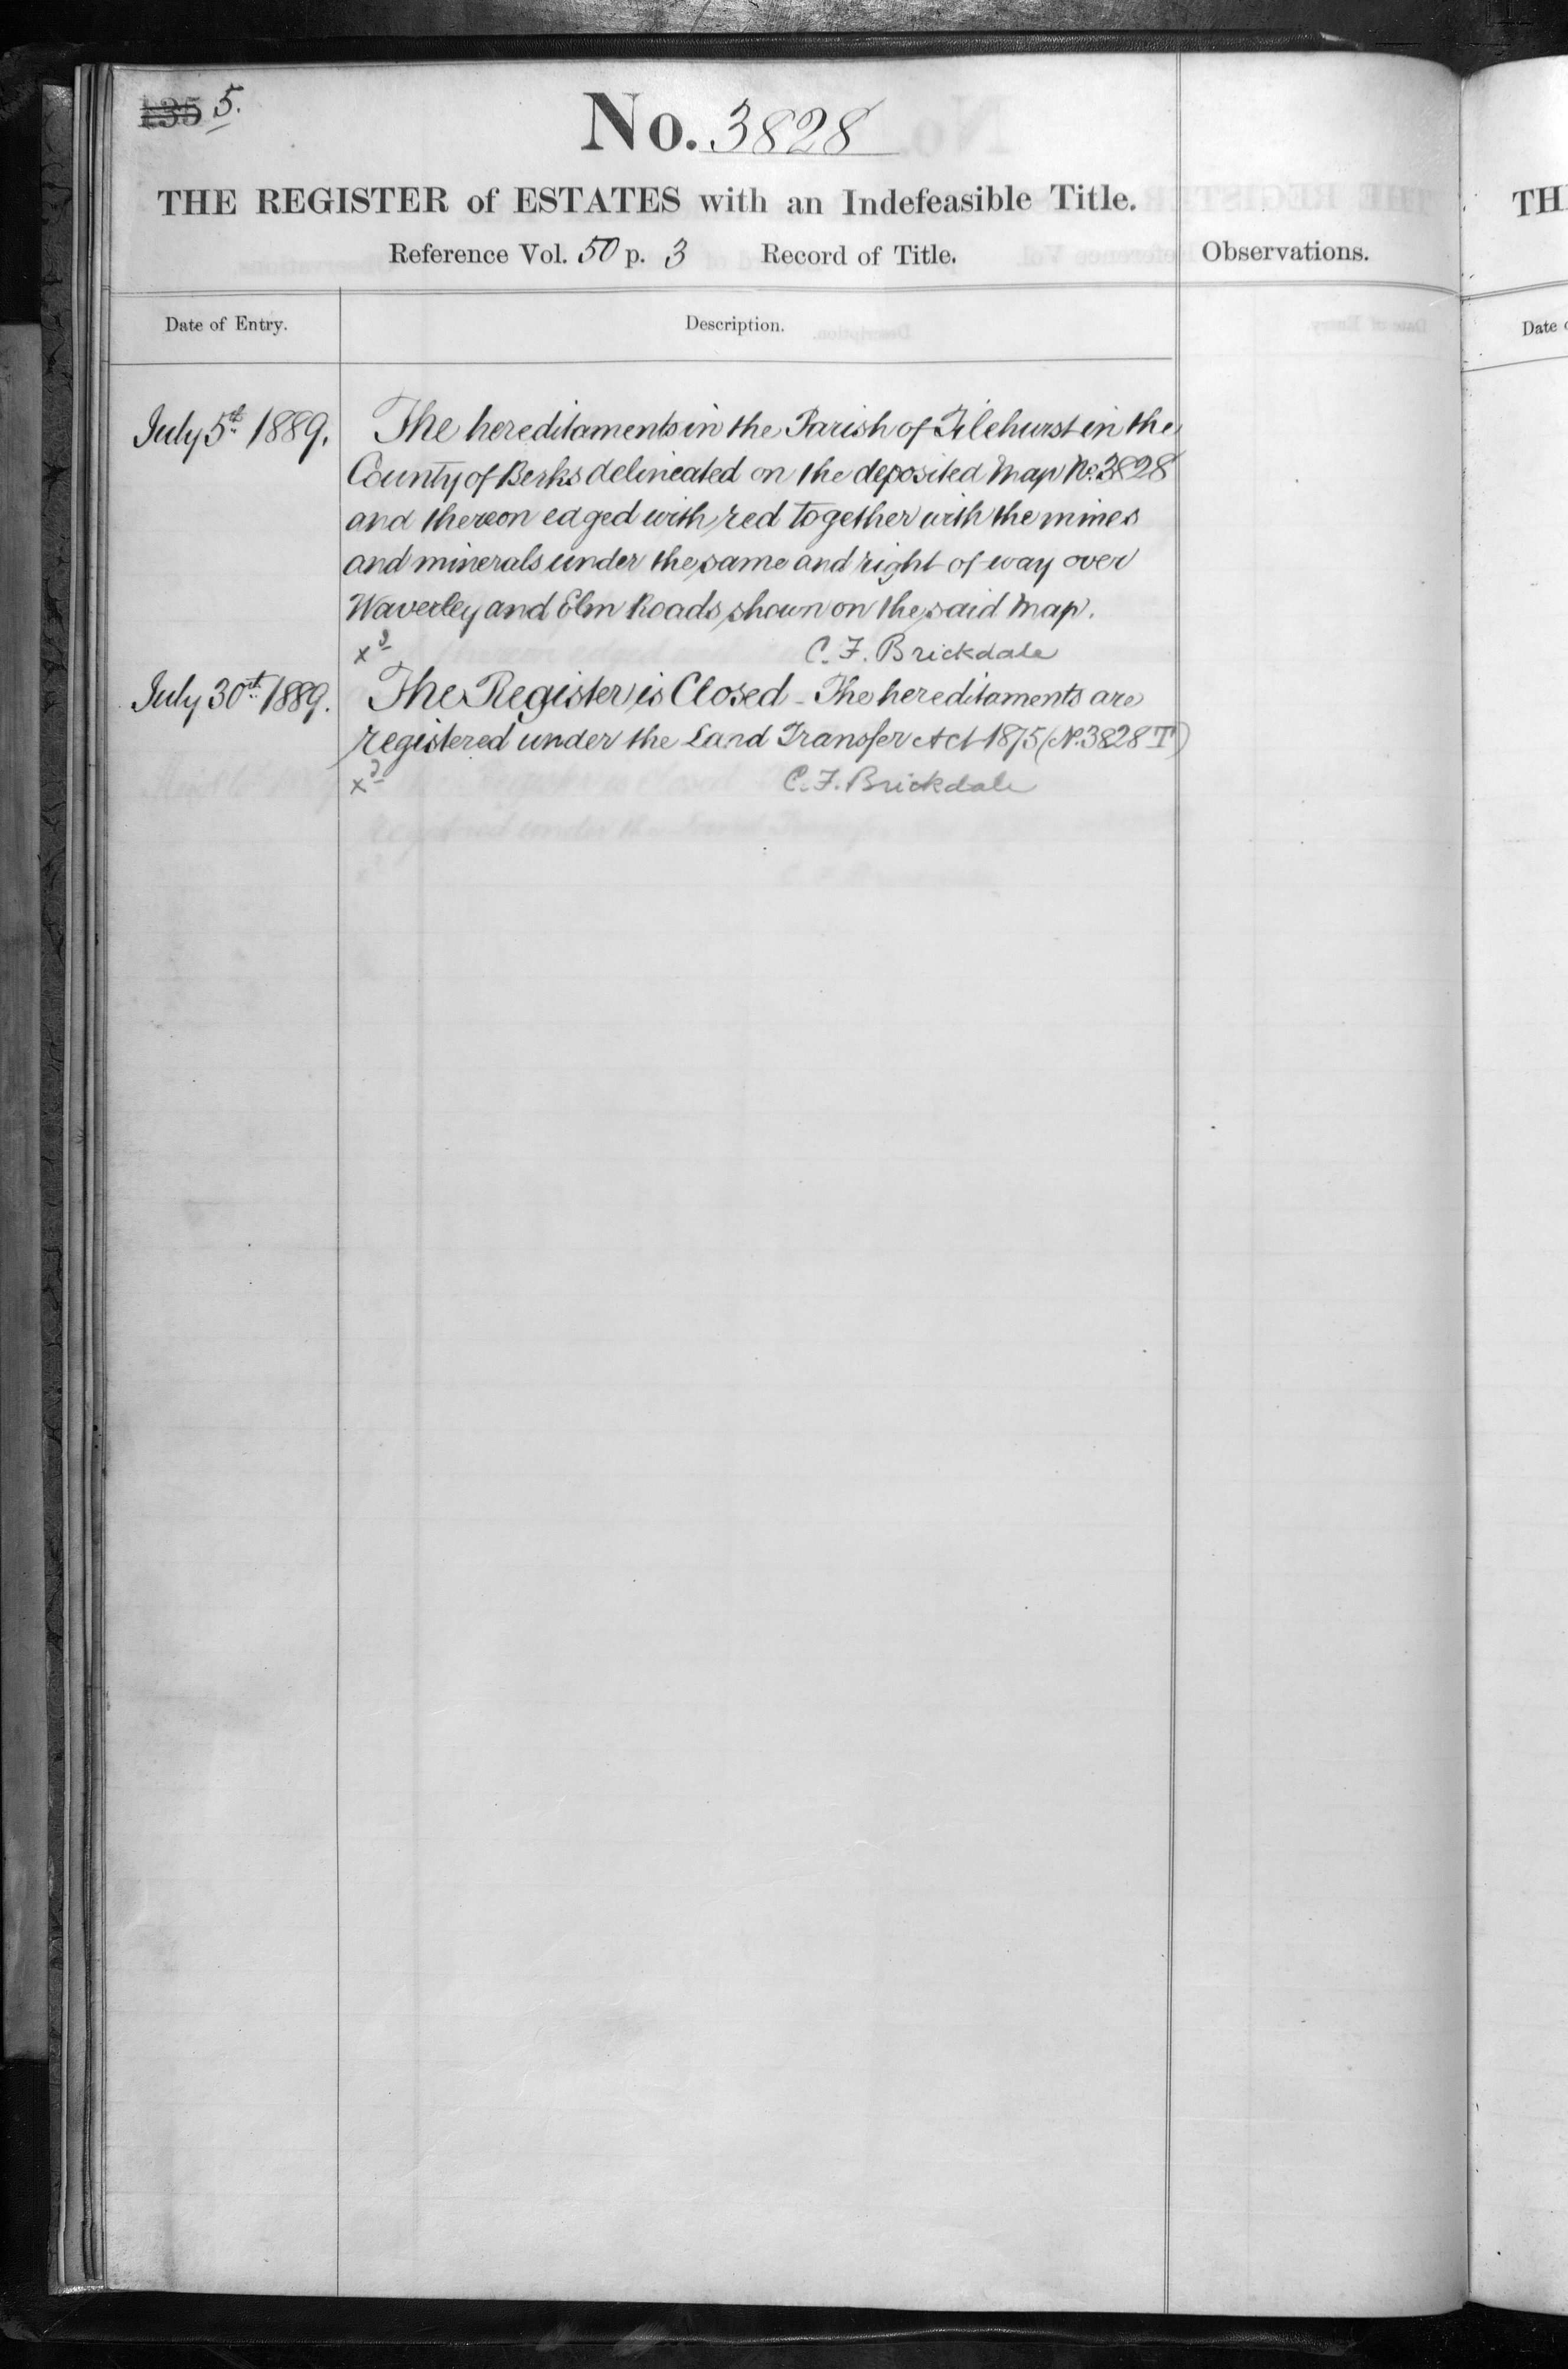 135 5.
No. 3828
THE REGISTER of ESTATES with an Indefeasible Title.
Reference Vol. 50 p. 3 Record of Title.
Observations.
Date of Entry.
Description.
July 5th 1889.
The hereditaments in the Parish of Tilehurst in the
County of Berks delineated on the deposited Map No. 3828
and thereon edged with red together with the mines
and minerals under the same and right of way over
Waverley and Elm Roads shown on the said Map.
xd
C. F. Brickdale
July 30th 1889.
The Register is Closed - The hereditaments are
registered under the Land Transfer Act 1875 (No. 3828 T)
xd
C. F. Brickdale
TH
Date